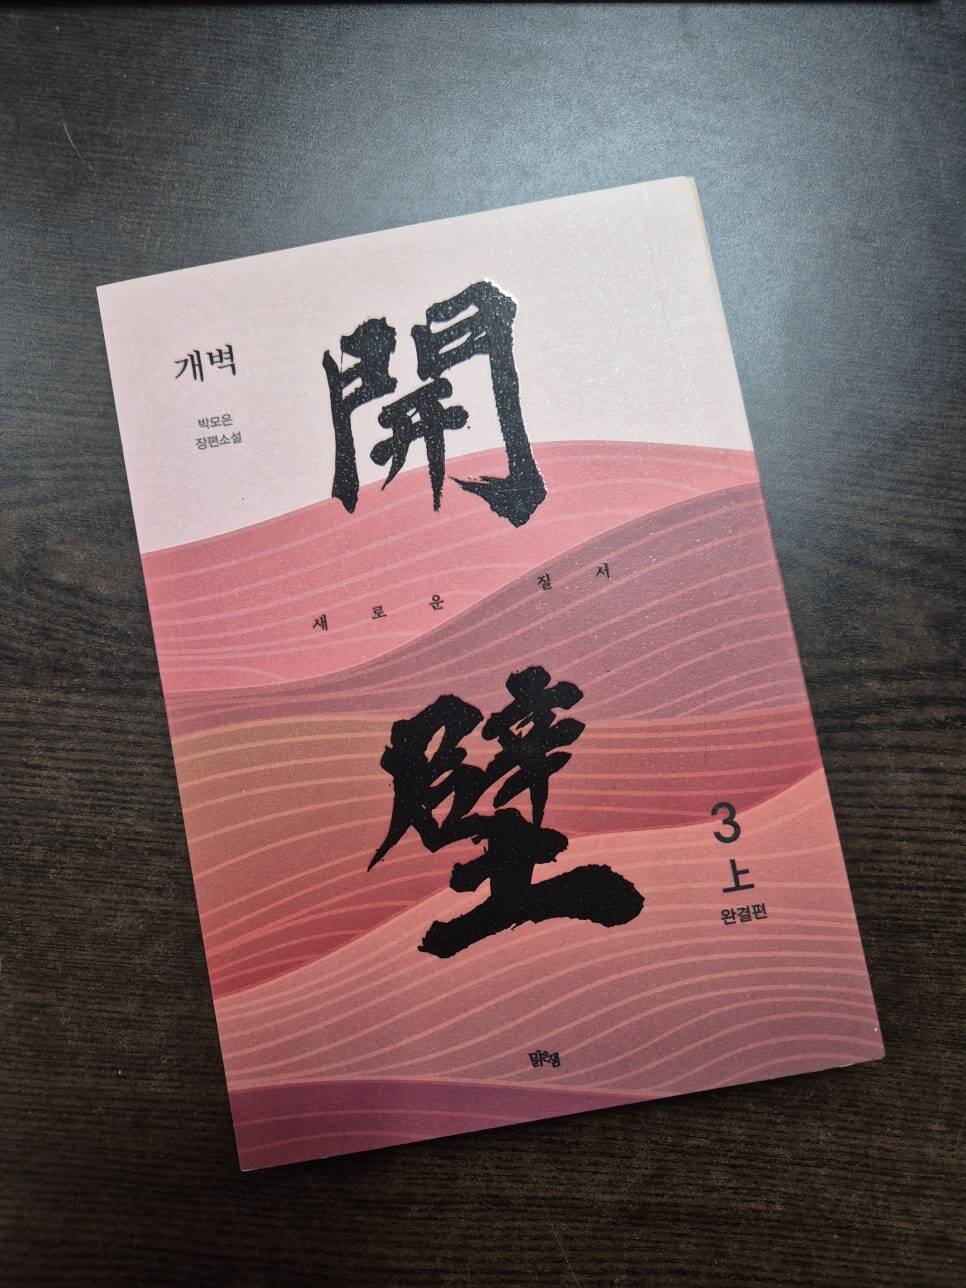 개벽
박모은
장편소설
開
새로운 질서
壁
3
上
완결편
맑은샘